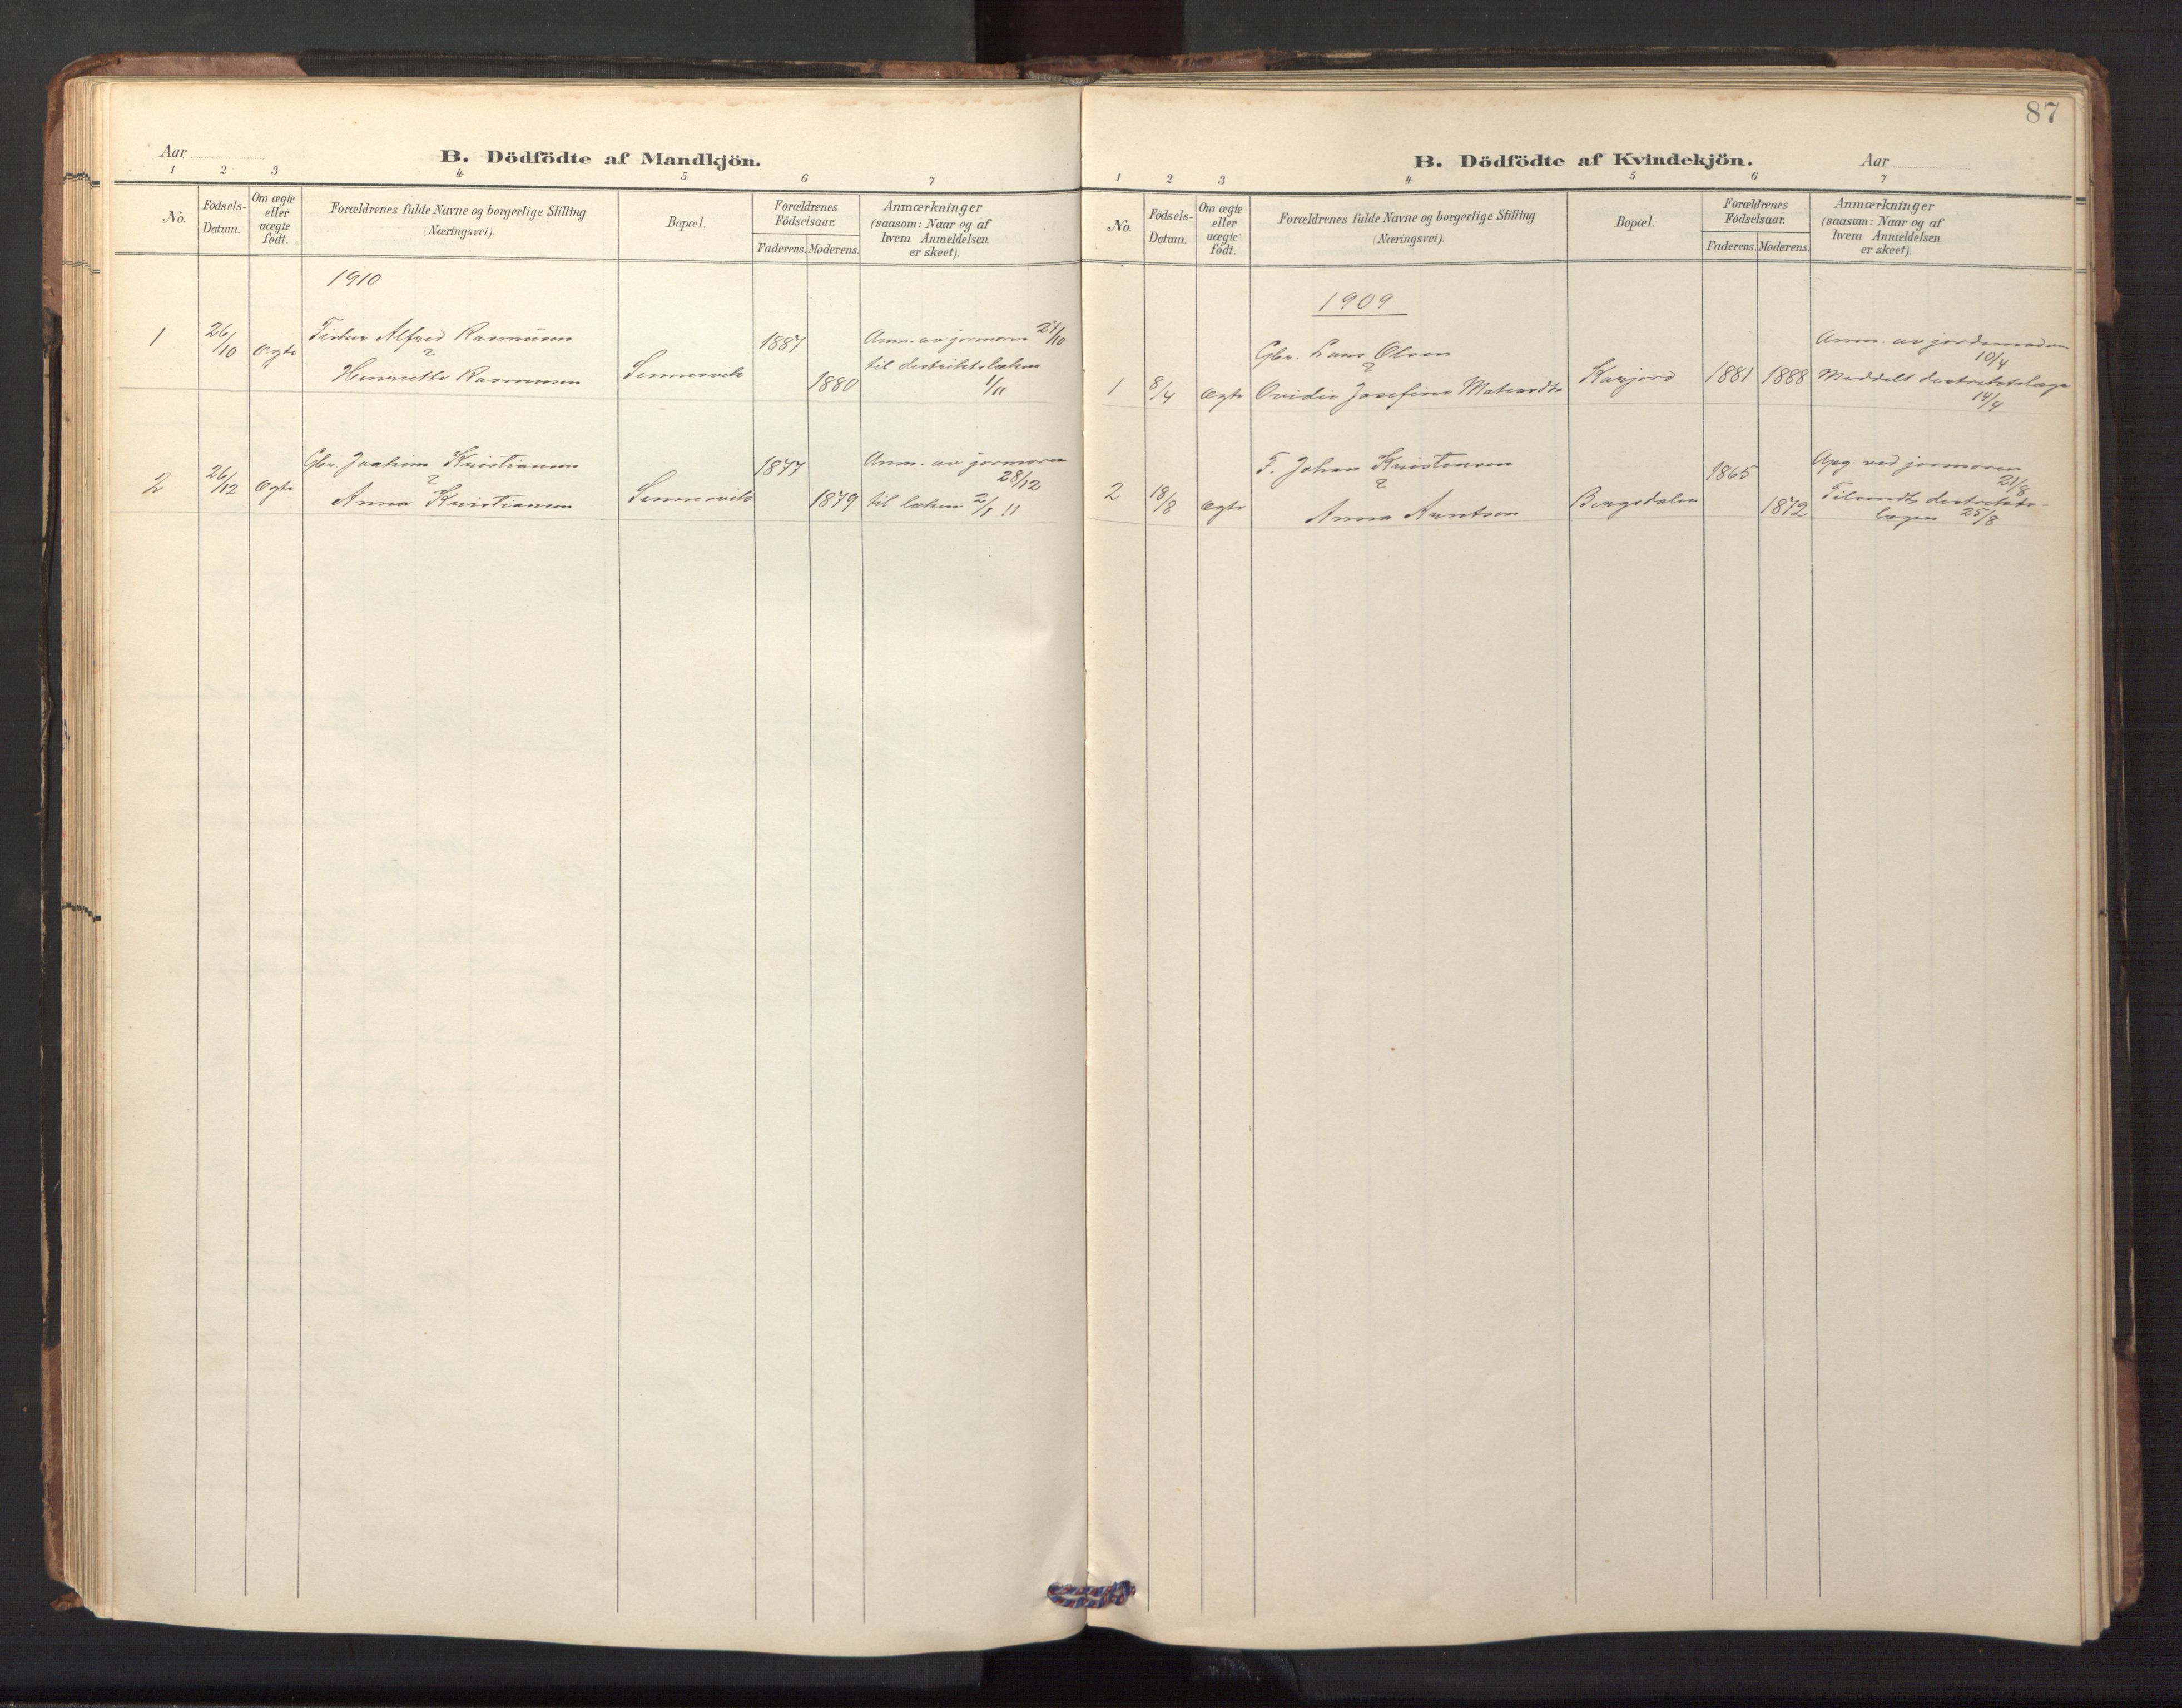 Aar
B. Dödfödte af Mandkjön.
1 2 3 4 5 6 7
No.
Födsels-Datum.
Om ægte eller uægte født.
Forældrenes fulde Navne og borgerlige Stilling
(Næringsvei).
Bopæl.
Forældrenes Födselsaar.
Faderens. Moderens.
Anmærkninger
(saasom: Naar og af
hvem Anmeldelsen
er skeet).
1910
1 26/10 Ægte Fisker Alfred Rasmusen 1887 Anm. av jormoren 27/10
& Henriette Rasmusen Sennesvik 1880 til distriktslæken
1/11
2 26/12 Ægte Gbr. Joakim Kristiansen 1877 Anm. av jormoren
28/12
& Anna Kristiansen Sennesvik 1879 til læken 2/1 11
87
B. Dödfödte af Kvindekjön.
Aar
1 2 3 4 5 6 7
No.
Födsels-Datum.
Om ægte eller uægte födt.
Forældrenes fulde Navne og borgerlige Stilling
(Næringsvei).
Bopæl.
Forældrenes Födselsaar.
Faderens. Moderens.
Anmærkninger
(saasom: Naar og af
hvem Anmeldelsen
er skeet).
1909
Gbr. Lars Olsen Anm. av jordemoderen
10/4
1 8/4 Ægte & Ovidie Josefine 1881 1888 Meddelt distriktslæge
14/4
F. Johan Kristensen 1865 Opg. ved jormoren
21/8
2 18/8 Ægte & Anna Arntsen Bergsdalen 1872 Tilsendt distrikts-
lægen 25/8